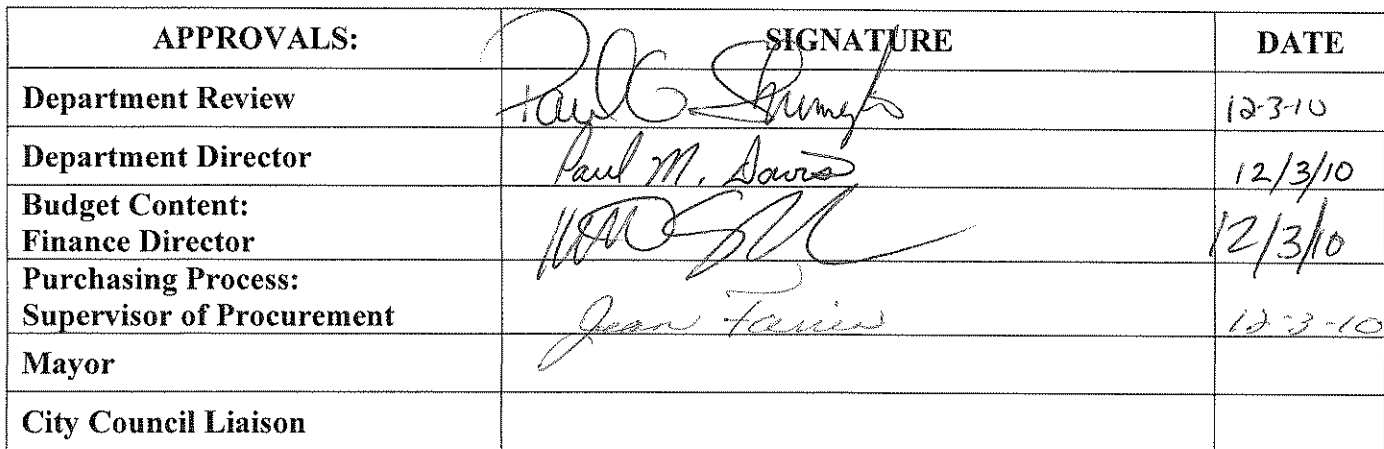 APPROVALS: SIGNATURE DATE
Department Review Paul 12-3-10
Department Director Paul M. Davis 12/3/10
Budget Content:
Finance Director 12/3/10
Purchasing Process:
Supervisor of Procurement Jean 12-3-10
Mayor
City Council Liaison